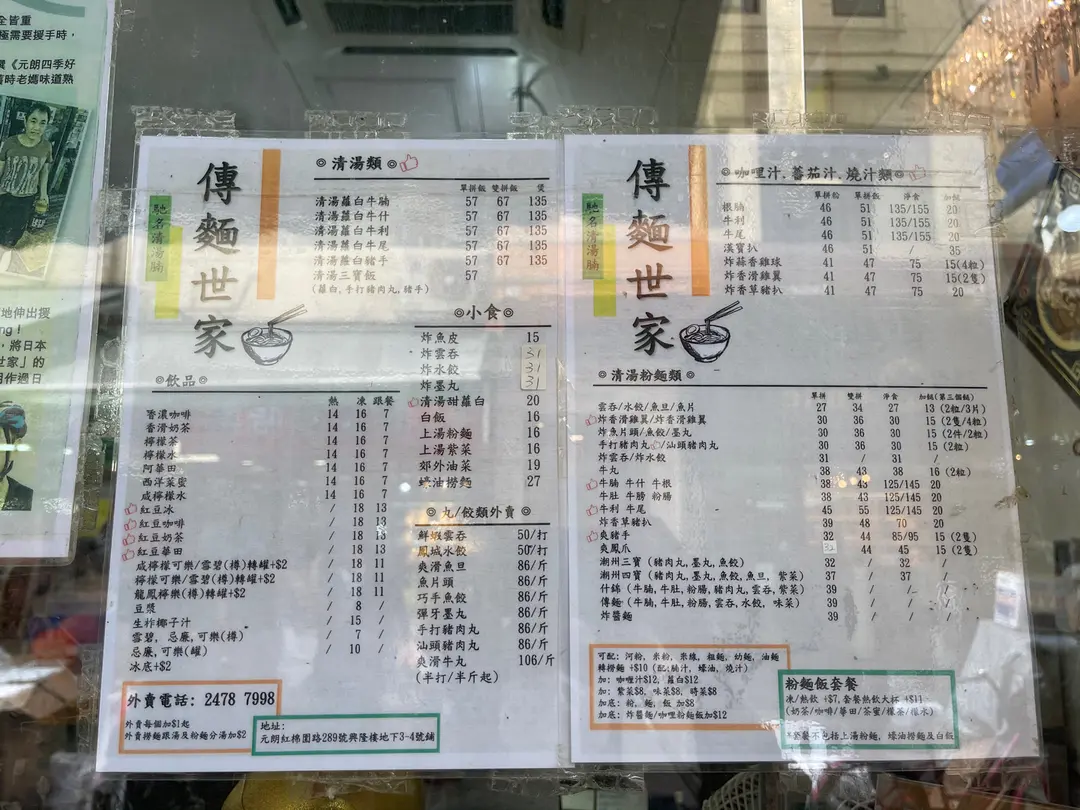 全皆重
極需要援手時，
《元朗四季好
舊時老媽味道熟
地伸出援
ng！
，將日本
世家」的
明作過日
傳麵世家
馳名清湯腩
◎ 清湯類 ◎
單拼飯 雙拼飯 煲
清湯蘿白牛腩 57 67 135
清湯蘿白牛什 57 67 135
清湯蘿白牛利 57 67 135
清湯蘿白牛尾 57 67 135
清湯蘿白豬手 57 67 135
清湯三寶飯 57
(蘿白,手打豬肉丸,豬手)
◎飲品◎
熱 凍 跟餐
香濃咖啡 14 16 7
香滑奶茶 14 16 7
檸檬茶 14 16 7
檸檬水 14 16 7
阿華田 14 16 7
西洋菜蜜 14 16 7
咸檸檬水 14 16 7
紅豆冰 / 18 13
紅豆咖啡 / 18 13
紅豆奶茶 / 18 13
紅豆華田 / 18 13
咸檸檬可樂/雪碧(樽)轉罐+$2 / 18 11
檸檬可樂/雪碧(樽)轉罐+$2 / 18 11
龍鳳檸樂(樽)轉罐+$2 / 18 11
豆漿 / 8 /
生榨椰子汁 / 15 /
雪碧, 忌廉,可樂(樽) / 7 /
忌廉,可樂(罐) / 10 /
冰底+$2
◎小食◎
炸魚皮 15
炸雲吞 31
炸水餃 31
炸墨丸 31
清湯甜蘿白 20
白飯 16
上湯粉麵 16
上湯紫菜 16
郊外油菜 19
蠔油撈麵 27
◎ 丸/餃類外賣 ◎
鮮蝦雲吞 50/打
鳳城水餃 50/打
爽滑魚旦 86/斤
魚片頭 86/斤
巧手魚餃 86/斤
彈牙墨丸 86/斤
手打豬肉丸 86/斤
汕頭豬肉丸 86/斤
爽滑牛丸 106/斤
(半打/半斤起)
外賣電話: 2478 7998
外賣每個加$1起
外賣撈麵跟湯及粉麵分湯加$2
地址:
元朗紅棉圍路289號興隆樓地下3-4號舖
傳麵世家
馳名清湯腩
◎ 咖哩汁、蕃茄汁、燒汁類◎
單拼飯 淨食 加餸
根腩 46 51 135/155 20
牛利 46 51 135/155 20
牛尾 46 51 135/155 20
漢寶扒 46 51 / 35
炸蒜香雞球 41 47 75 15(4粒)
炸香滑雞翼 41 47 75 15(2隻)
炸香草豬扒 41 47 75 20
◎ 清湯粉麵類 ◎
單拼 雙拼 淨食 加餸(第三個餸)
雲吞/水餃/魚旦/魚片 27 34 27 13 (2粒/3片)
炸香滑雞翼/炸香滑雞翼 30 36 30 15 (2隻/4粒)
炸魚片頭/魚餃/墨丸 30 36 30 15 (2件/2粒)
手打豬肉丸/汕頭豬肉丸 30 36 30 15 (2粒)
炸雲吞/炸水餃 31 / 31 /
牛丸 38 43 38 16 (2粒)
牛腩 牛什 牛根 38 43 125/145 20
牛肚 牛膀 粉腸 38 43 125/145 20
牛利 牛尾 45 55 125/145 20
炸香草豬扒 39 48 70 20
爽豬手 32 44 85/95 15 (2隻)
爽鳳爪 32 44 45 15 (2隻)
潮州三寶 (豬肉丸,墨丸,魚餃) 32 / 32 /
潮州四寶 (豬肉丸,墨丸,魚餃,魚旦, 紫菜) 37 / 37 /
什錦 (牛腩,牛肚,粉腸,豬肉丸,雲吞,紫菜) 39 / / /
傳麵 (牛腩,牛肚,粉腸,雲吞,水餃, 味菜) 39 / / /
炸醬麵 39 / / /
可配: 河粉, 米粉, 米線, 粗麵, 幼麵, 油麵
轉撈麵 +$10 (配:腩汁, 蠔油, 燒汁)
加: 咖哩汁$12, 蘿白$12
加: 紫菜$8, 味菜$8, 時菜$8
加底: 粉, 麵, 飯 加$8
加底: 炸醬麵/咖哩粉麵飯加$12
粉麵飯套餐
凍/熱飲 +$7, 套餐熱飲大杯 +$11
(奶茶/咖啡/華田/茶蜜/檸茶/檸水)
*套餐不包括上湯粉麵, 蠔油撈麵及白飯